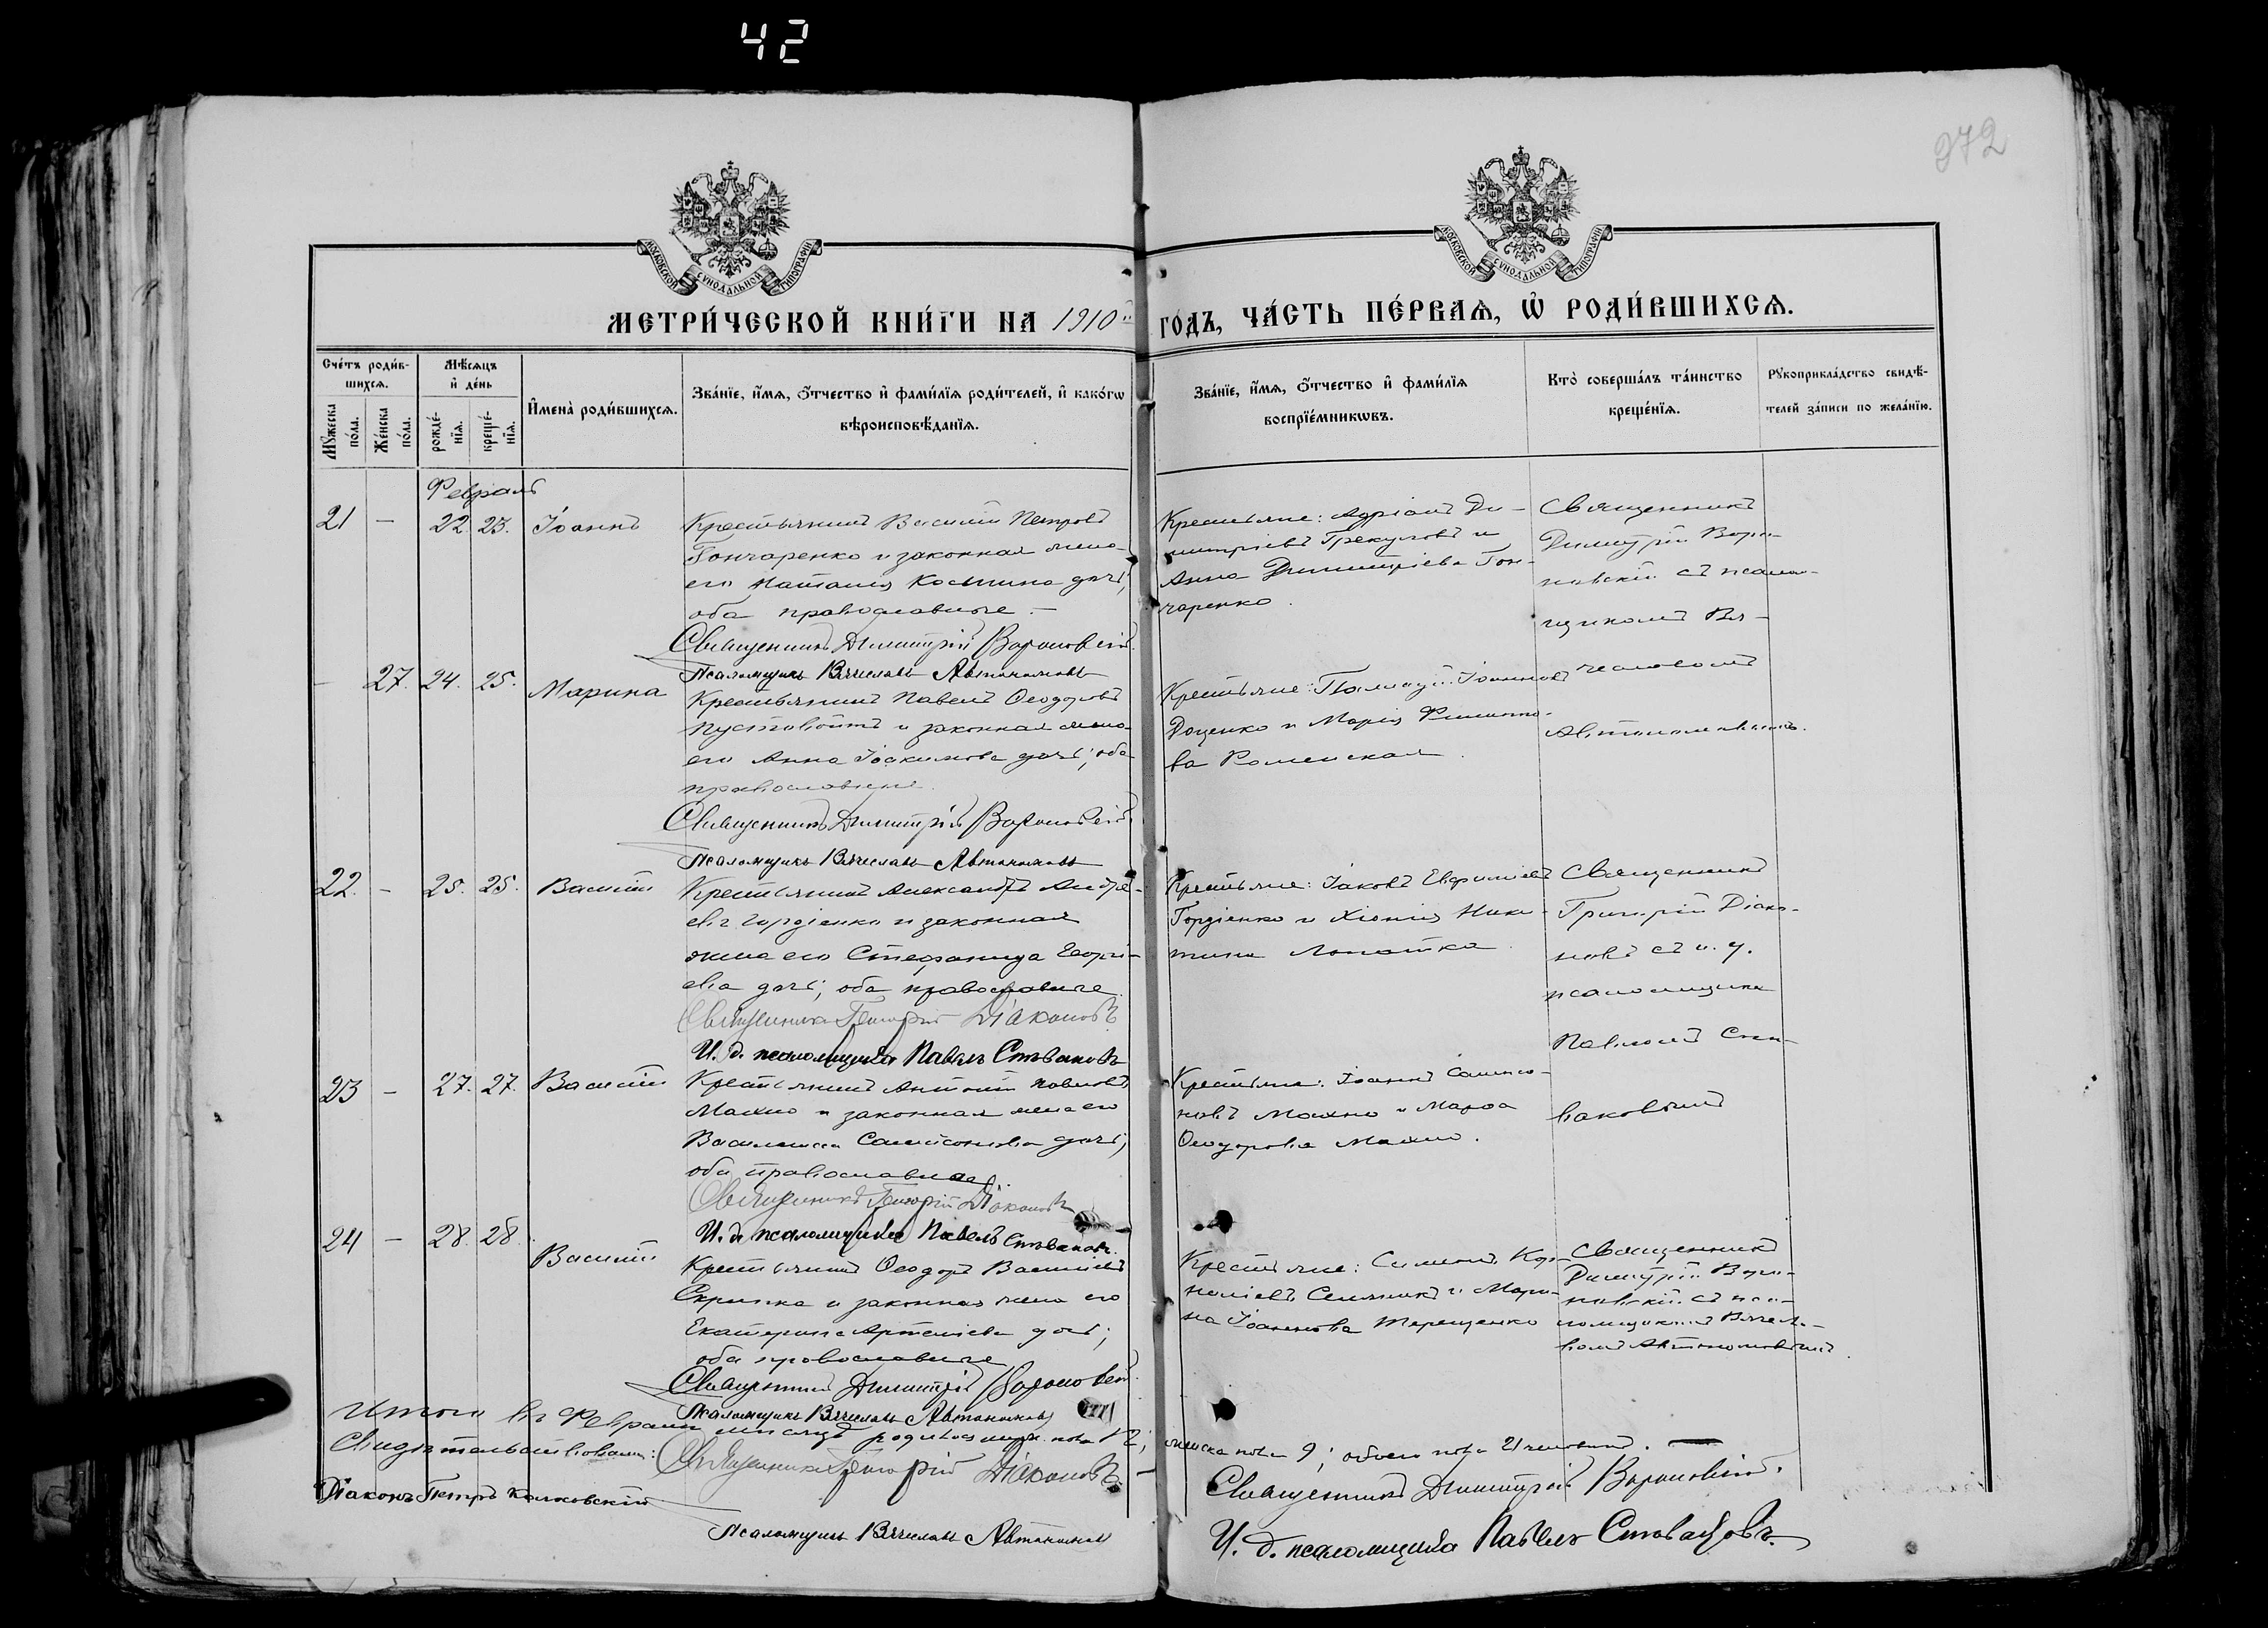 42
272
МОСКОВСКОЙ СѴНОДАЛЬНОЙ ТИПОГРАФІИ
МОСКОВСКОЙ СѴНОДАЛЬНОЙ ТИПОГРАФІИ
МЕТРИ́ЧЕСКОЙ КНИ́ГИ НА 1910й ГО́ДЪ, ЧА́СТЬ ПЕ́РВАѦ, Ѡ҆ РОДИ́ВШИХСѦ.
Сче́тъ роди́в-
шихсѧ.
Мꙋ́жеска
по́ла.
Же́нска
по́ла.
Мѣ́сѧцъ
и҆ де́нь
рожде́-
нїѧ.
креще́-
нїѧ.
И҆мена̀ роди́вшихсѧ.
Зва́нїе, и҆́мѧ, ѻ҆́тчество и҆ фами́лїѧ роди́телей, и҆ како́гѡ
вѣроисповѣ́данїѧ.
Зва́нїе, и҆́мѧ, ѻ҆́тчество и҆ фами́лїѧ
воспрїе́мникѡвъ.
Кто̀ соверша́лъ та́инство
креще́нїѧ.
Рꙋкоприкла́дство свидѣ́-
телей за́писи по жела́нїю.
Февраль
21 — 22. 23. Іоаннъ
Крестьянинъ Василій Петровъ
Гончаренко и законная жена
его Наталія Косьмина дочь,
оба православные.—
Священникъ Димитрій Вороновскій.
Псаломщикъ Вячеславъ Автономовъ
Крестьяне: Адріанъ Ди-
митріевъ Грекуловъ и
Анна Димитріева Гон-
чаренко.
Священникъ
Димитрій Воро-
новскій съ псалом-
щикомъ Вя-
чеславомъ
Автономовымъ.
— 27. 24. 25. Марина
Крестьянинъ Павелъ Ѳеодоровъ
Пустовойтъ и законная жена
его Анна Іоакимова дочь; оба
православные.
Священникъ Димитрій Вороновскій.
Псаломщикъ Вячеславъ Автономовъ
Крестьяне: Іоанновъ
Доценко и Марія Филиппо-
ва Роменская.
22. — 25. 25. Василій
Крестьянинъ Александръ Андре-
евъ Гордіенко и законная
жена его Стефанида Георгі-
ева дочь; оба православные.
Священникъ Григорій Діаконовъ
И. д. псаломщика Павелъ Стоваковъ
Крестьяне: Іаковъ Евфиміевъ
Гордіенко и Хіонія Ники-
тина Лопатка.
Священникъ
Григорій Діако-
новъ съ и. д.
псаломщика
Павломъ Сто-
ваковымъ
23 — 27. 27. Василій
Крестьянинъ Антоній Павловъ
Махно и законная жена его
Василисса Самсонова дочь;
оба православные.
Священникъ Григорій Діаконовъ
И. д. псаломщика Павелъ Стоваковъ.
Крестьяне: Іоаннъ Самсо-
новъ Махно и Марѳа
Ѳеодорова Махно.
24 — 28. 28. Василій
Крестьянинъ Ѳеодоръ Василіевъ
Скрипка и законная жена его
Екатерина Артеміева дочь;
оба православные
Священникъ Димитрій Вороновскій.
Псаломщикъ Вячеславъ Автономовъ
Крестьяне: Симеонъ Кор-
ниліевъ и Мари-
на Іоаннова Терещенко
Священникъ
Димитрій Воро-
новскій съ пса-
ломщикомъ Вячесла-
вомъ Автономовымъ.
Итого въ Февралѣ мѣсяцѣ родилось муж. пола 12; женска пола 9; обоего пола 21 человѣкъ.—
Свидѣтельствовали: Священникъ Григорій Діаконовъ.—
Священникъ Димитрій Вороновскій.
Діаконъ Петръ Калиновскій
Псаломщикъ Вячеславъ Автономовъ
И. д. псаломщика Павелъ Стоваковъ.